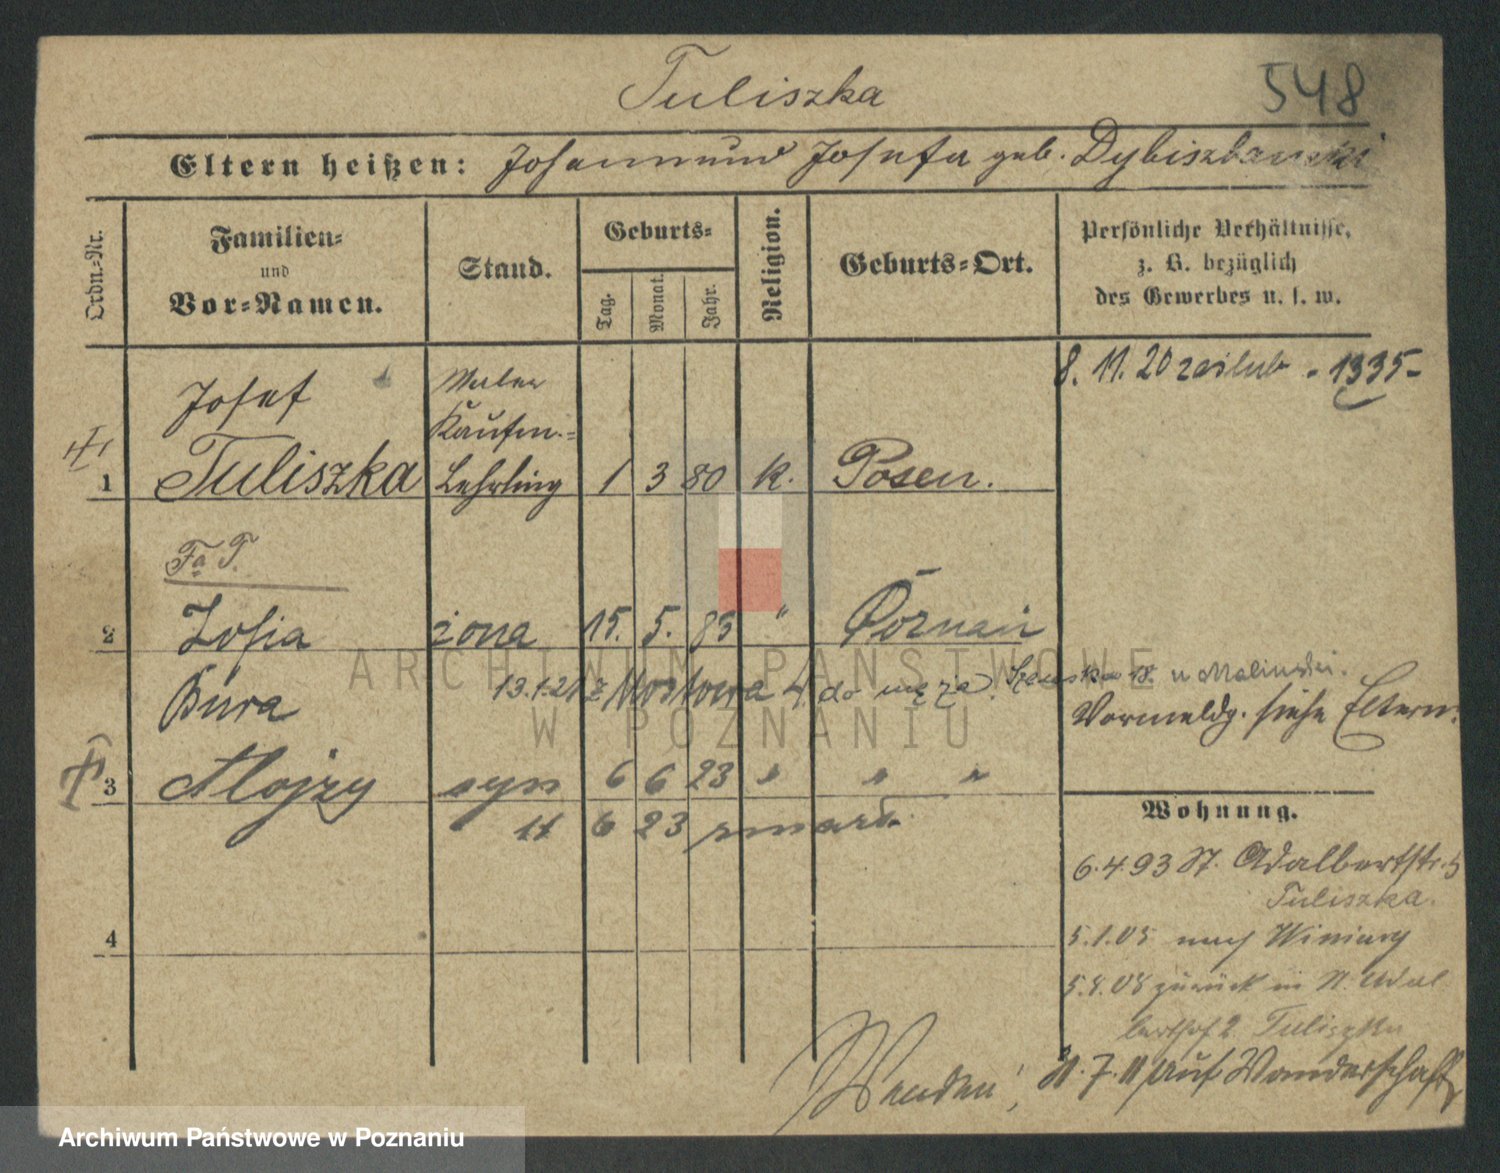 Tuliszka 548
Eltern heißen: Johann und Josefa geb. Dybiszbanski
Ordn.-Nr. Familien- und Vor-Namen. Stand. Geburts- Tag. Monat. Jahr. Religion. Geburts-Ort. Persönliche Verhältnisse, z. B. bezüglich des Gewerbes u. s. w.
8. 11. 20 zaślub - 1335-
Josef Maler
Kaufm.-
1 Tuliszka Lehrling 1 3 80 k. Posen.
Fa T.
2 Zofia żona 15. 5. 83 " Poznań
Bura 19.1.21 z Mostowa 4. do męża. u Malinski.
Vormeldg. siehe Eltern.
3 Alojzy syn 6 6 23 " " "
11 6 23 zmarł.
Wohnung.
6.4.93 St. Adalbertstr. 5
Tuliszka.
4
5.1.05 nach Winiary
5.8.08 zurück in St. Adal
berthof 2. Tuliszka
Wenden! 31.7.11 auf Wanderschaft
ARCHIWUM PAŃSTWOWE
W POZNANIU
Archiwum Państwowe w Poznaniu